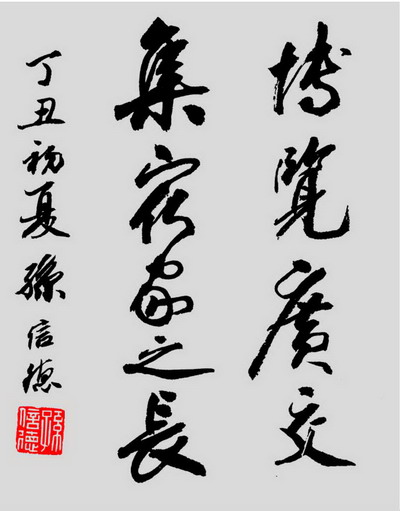 博覽廣交
集衆家之長
丁丑初夏孫信德
孫信德